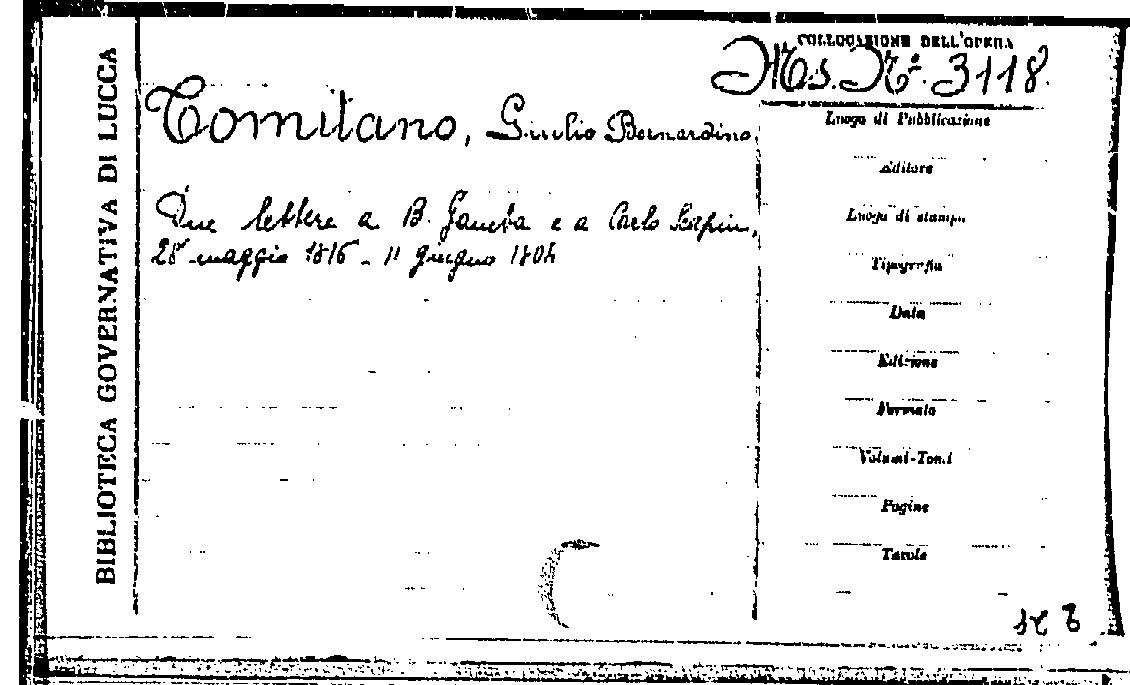 BIBLIOTECA GOVERNATIVA DI LUCCA
COLLOCAZIONE DELL'OPERA
Ms. N.° 3118.
Tomitano, Giulio Bernardino
Due lettere a B. Gamba e a Carlo
28 maggio 1816 - 11 giugno 1804
Luogo di Pubblicazione
Editore
Luogo di stampa
Tipografia
Data
Edizione
Formato
Volumi-Tomi
Pagine
Tavole